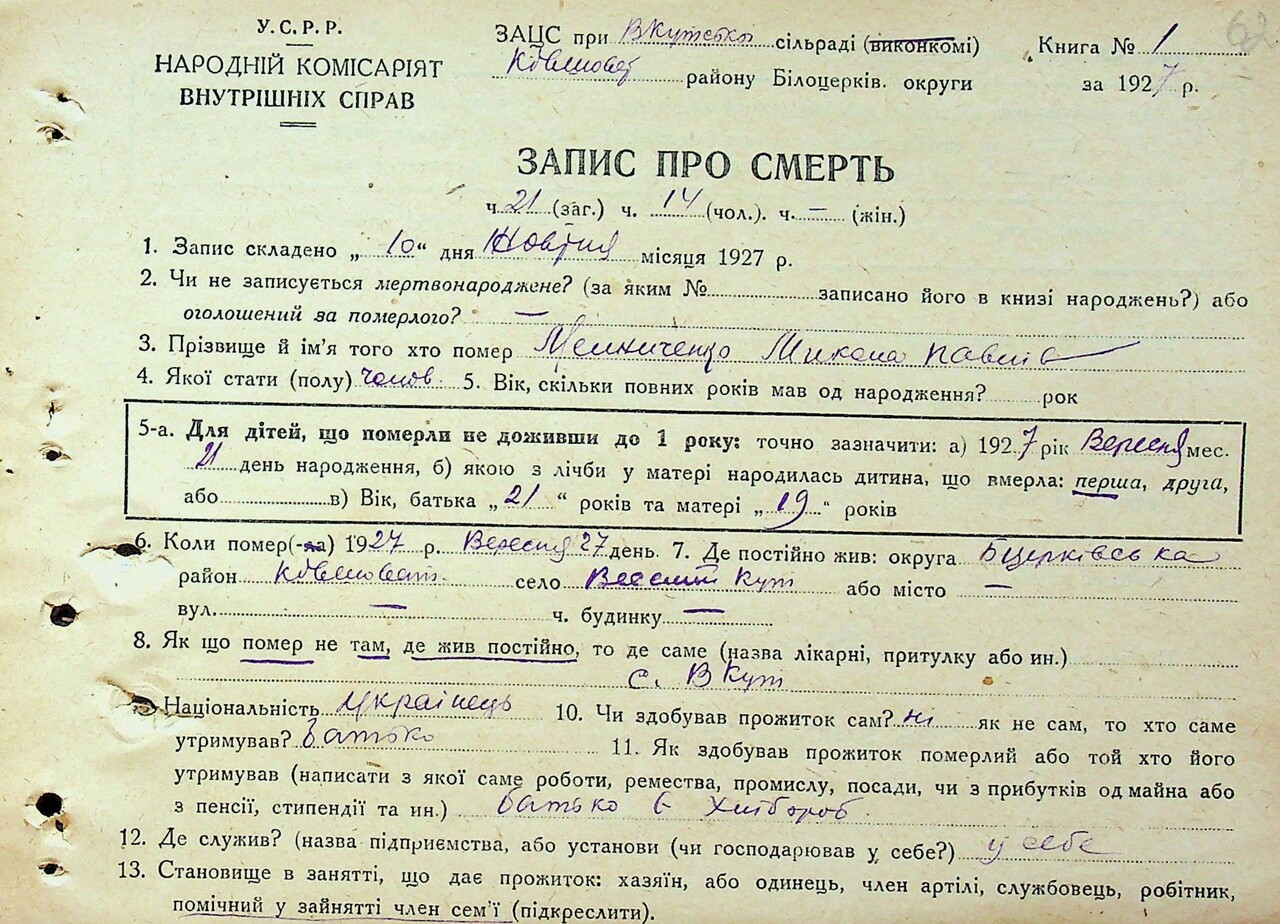 У.С.Р.Р.
НАРОДНІЙ КОМІСАРІЯТ
ВНУТРІШНІХ СПРАВ
ЗАЦС при сільраді (виконкомі)
району Білоцерків. округи
Книга № 1
за 1927 р.
62
ЗАПИС ПРО СМЕРТЬ
ч. 21 (заг.) ч. 14 (чол.). ч. — (жін.)
1. Запис складено „ 10 “ дня Жовтня місяця 1927 р.
2. Чи не записується мертвонароджене? (за яким № записано його в книзі народжень?) або
оголошений за померлого? —
3. Прізвище й ім'я того хто помер Мельниченко Микола Павлів
4. Якої стати (полу) чолов. 5. Вік, скільки повних років мав од народження? рок
5-а. Для дітей, що померли не доживши до 1 року: точно зазначити: а) 1927 рік Вересня мес.
21 день народження, б) якою з лічби у матері народилась дитина, що вмерла: перша, друга,
або в) Вік, батька „ 21 “ років та матері „ 19 “ років
6. Коли помер(-ла) 1927 р. Вересня 27 день. 7. Де постійно жив: округа Бцерківська
район село Веселий Кут або місто —
вул. — ч. будинку —
8. Як що помер не там, де жив постійно, то де саме (назва лікарні, притулку або ин.)
с. В Кут
Національність Українець 10. Чи здобував прожиток сам? ні як не сам, то хто саме
утримував? батько 11. Як здобував прожиток померлий або той хто його
утримував (написати з якої саме роботи, ремества, промислу, посади, чи з прибутків од майна або
з пенсії, стипендії та ин.) батько є хлібороб
12. Де служив? (назва підприємства, або установи (чи господарював у себе?) у себе
13. Становище в занятті, що дає прожиток: хазяїн, або одинець, член артілі, службовець, робітник,
помічний у зайнятті член сем'ї (підкреслити).